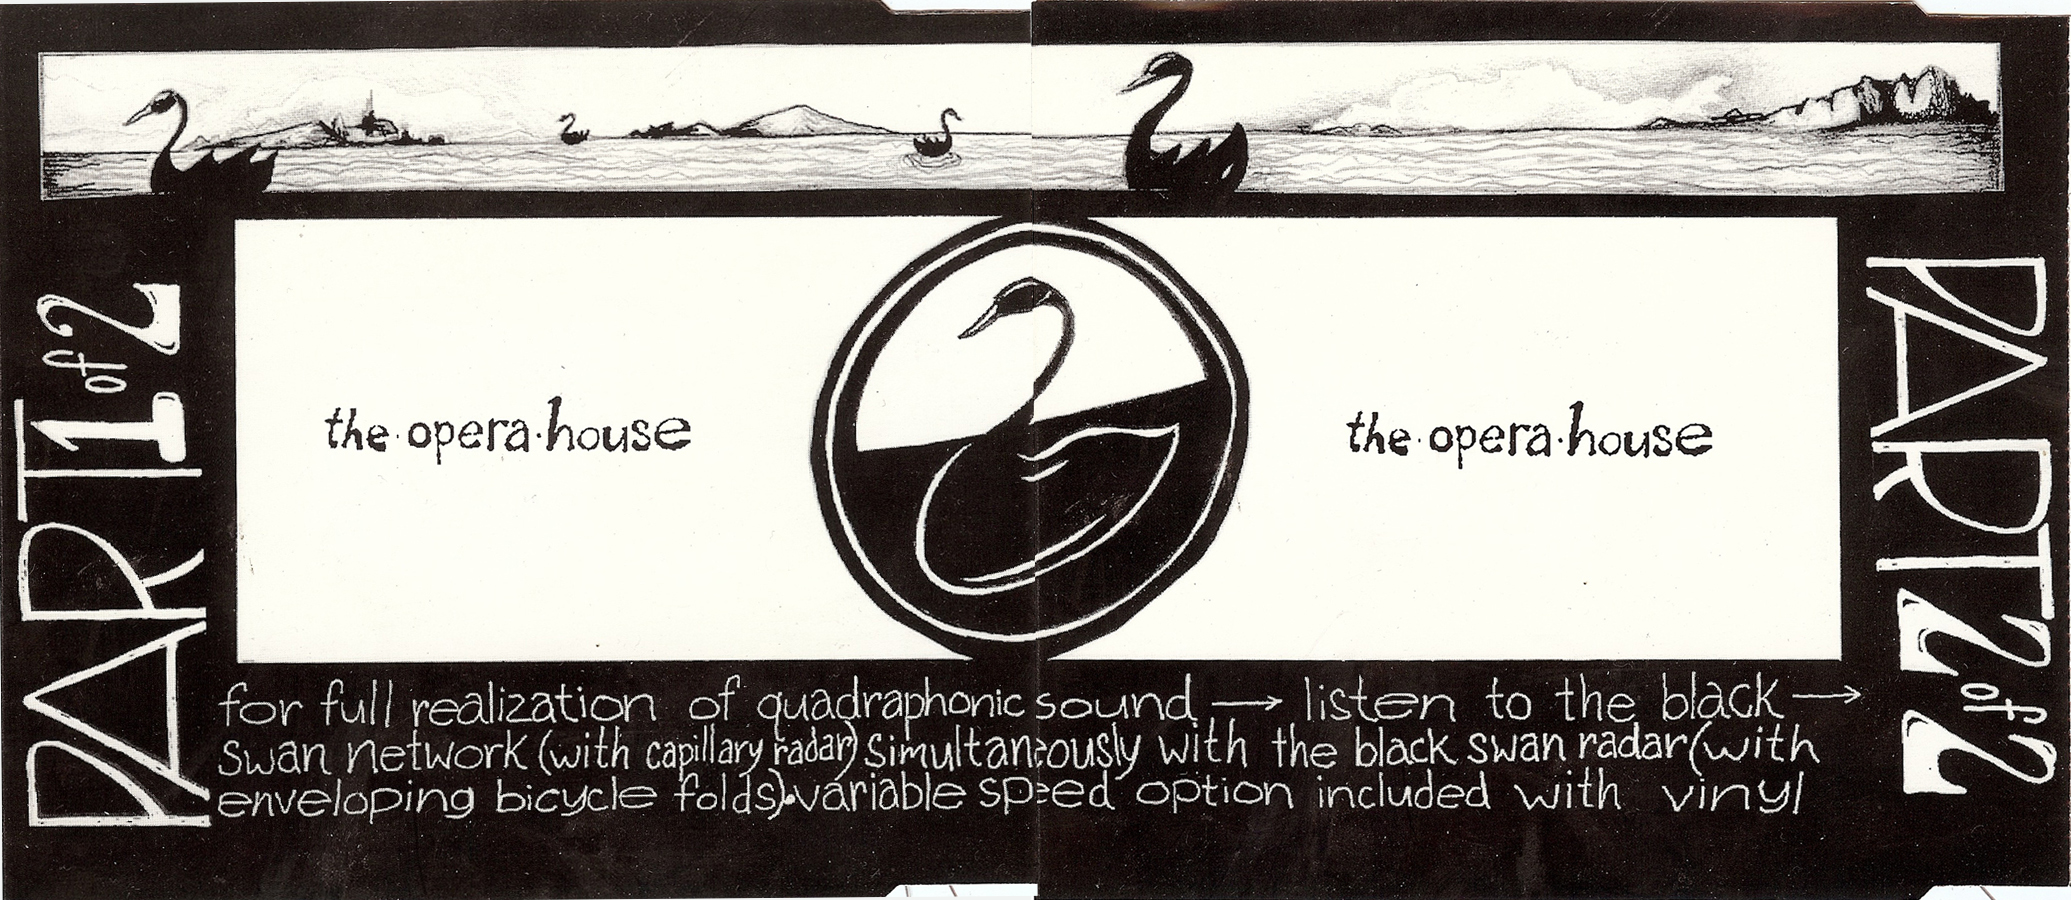 PART 1 of 2
the·opera·house
the·opera·house
PART 2 of 2
for full realization of quadraphonic sound → listen to the black →
swan network (with capillary radar) simultaneously with the black swan radar (with
enveloping bicycle folds). variable speed option included with vinyl